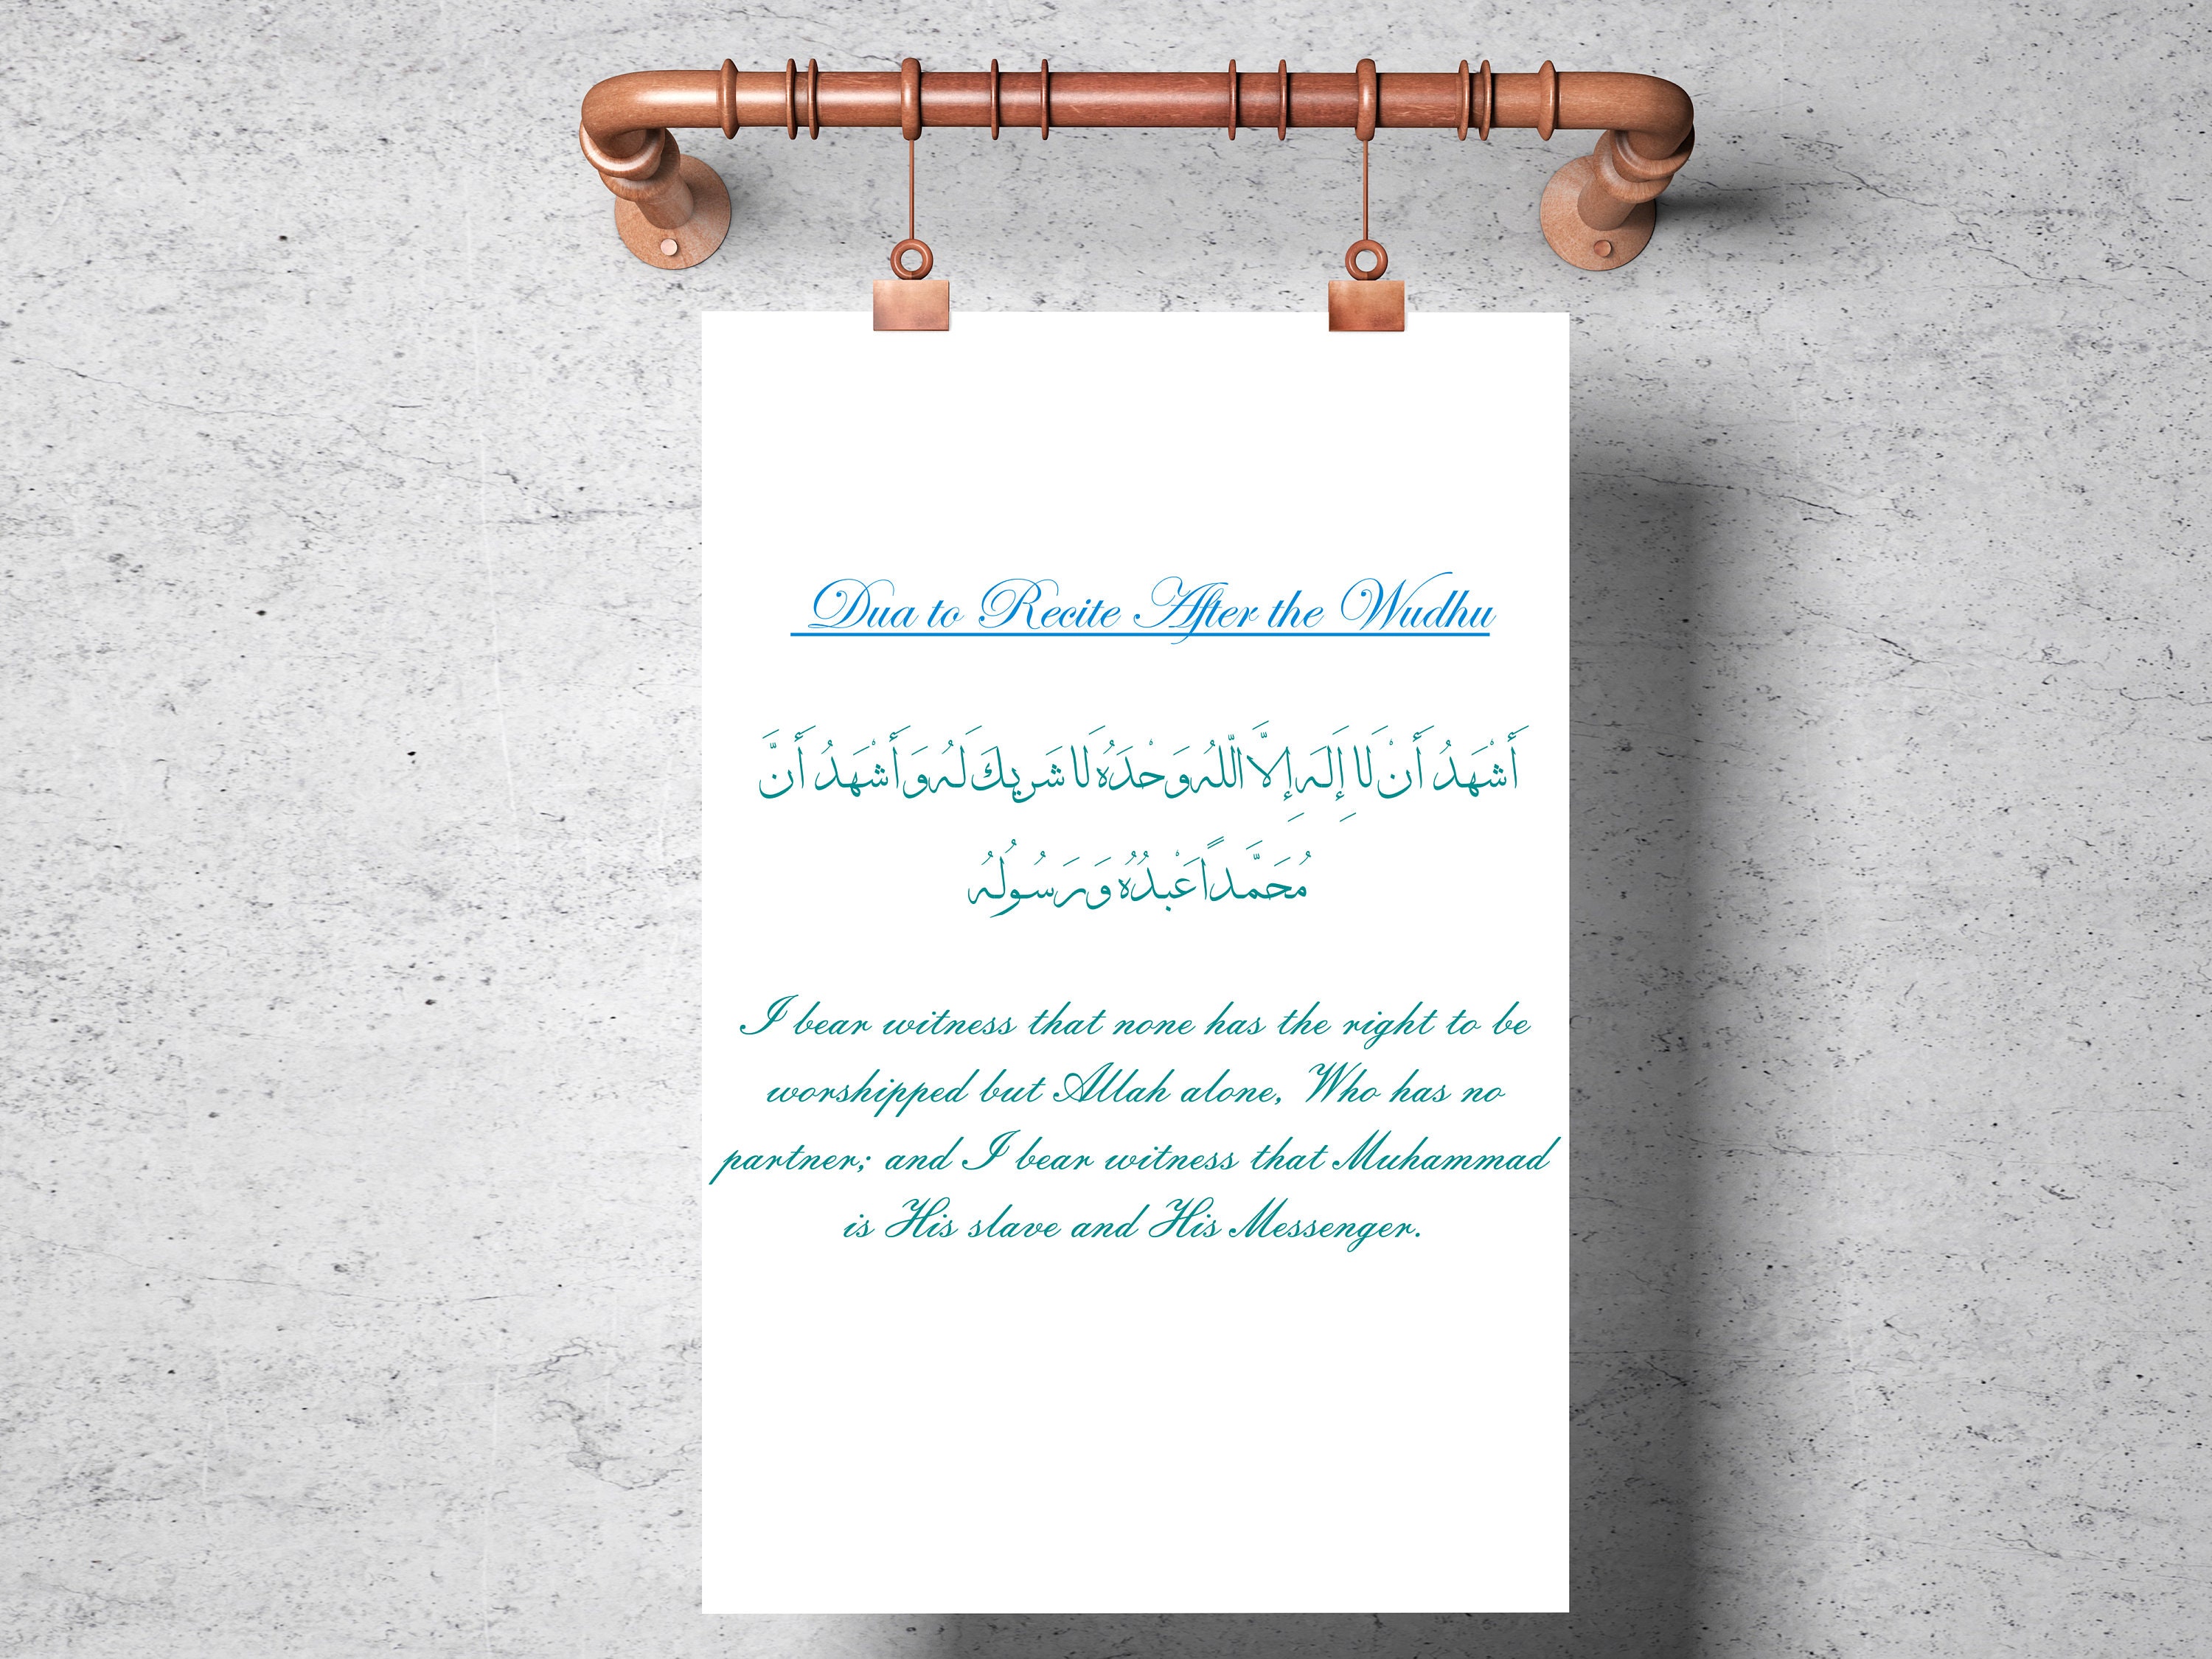 Dua to Recite After the Wudhu
أَشْهَدُ أَنْ لَا إِلَهَ إِلاَّ اللّهُ وَحْدَهُ لَا شَرِيكَ لَهُ وَ أَشْهَدُ أَنَّ
مُحَمَّداً عَبْدُهُ وَرَسُولُهُ
I bear witness that none has the right to be
worshipped but Allah alone, Who has no
partner; and I bear witness that Muhammad
is His slave and His Messenger.